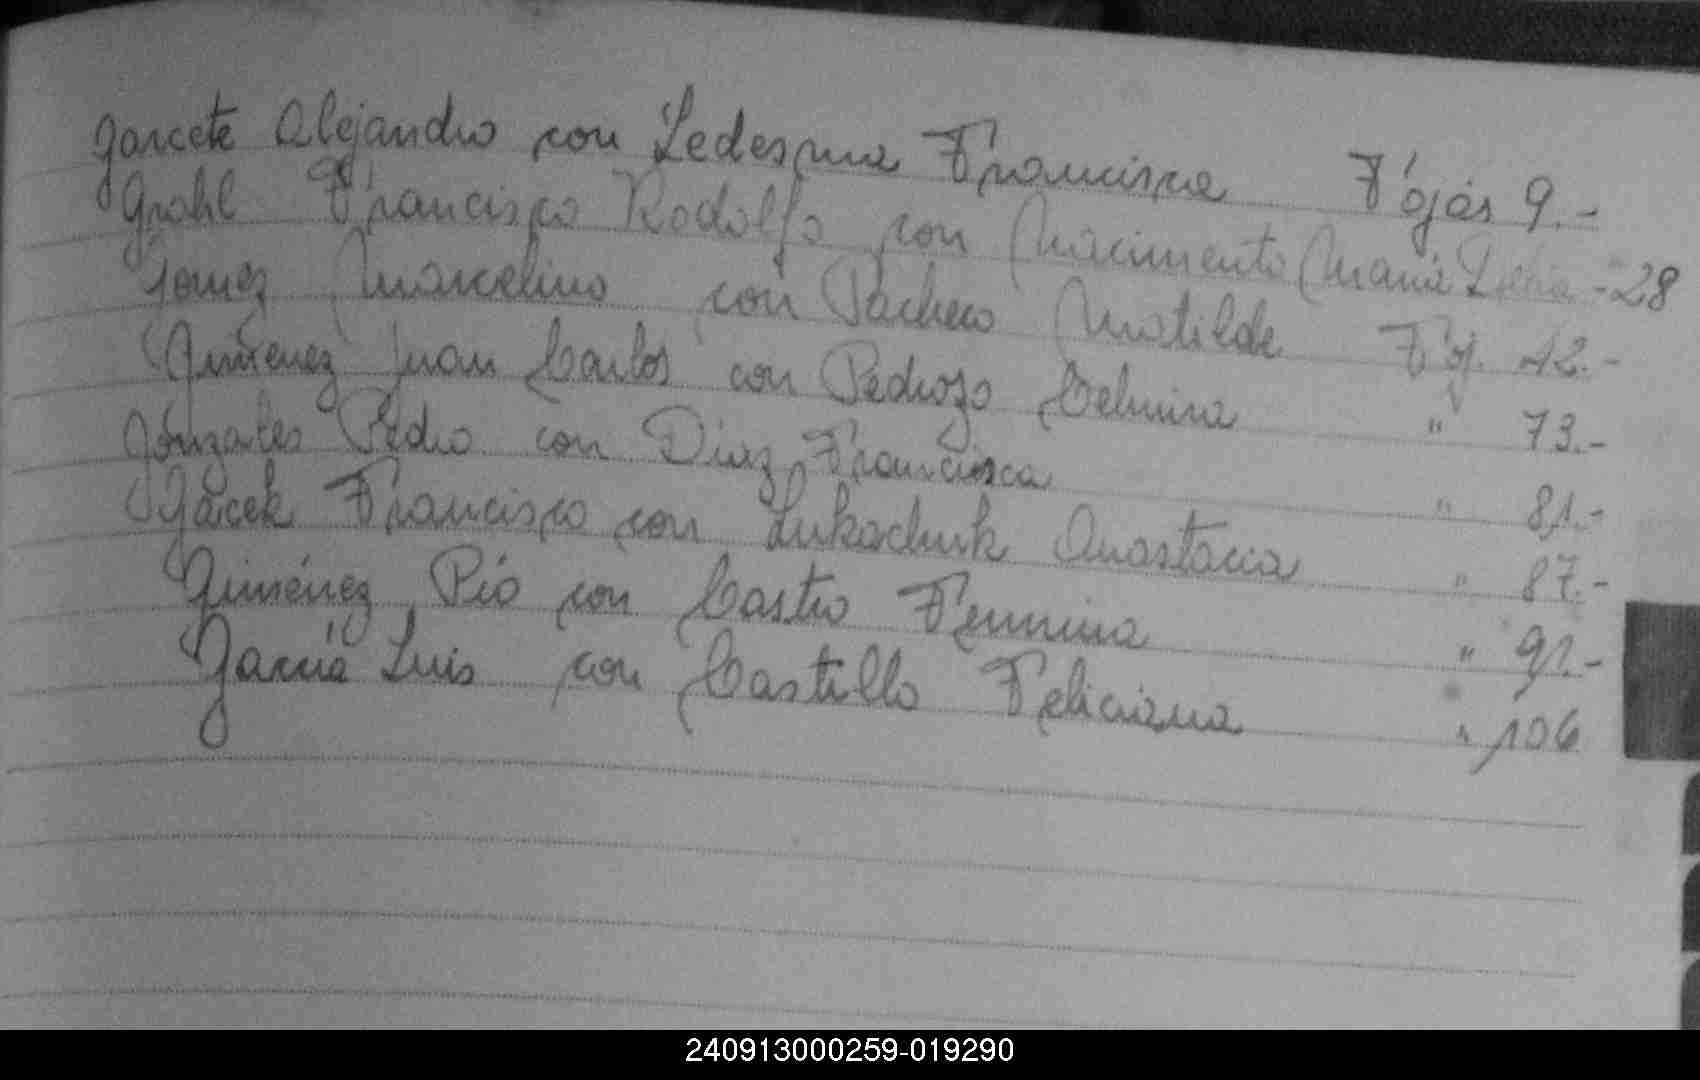 Garcete Alejandro con Ledesma Francisca Fojas 9.-
Grahl Francisco Rodolfo con Nacimento Maria -28
Gomez Marcelino con Pacheco Matilde Foj. 42.-
Gimenez Juan Carlos con Pedrozo Celmira " 73.-
Gonzales Pedro con Diaz Francisca " 81.-
Gacek Francisco con Lukachuk Anastacia " 87.-
Giménez Pío con Castro Fermina " 91.-
Garcia Luis con Castillo Feliciana " 106
240913000259-019290